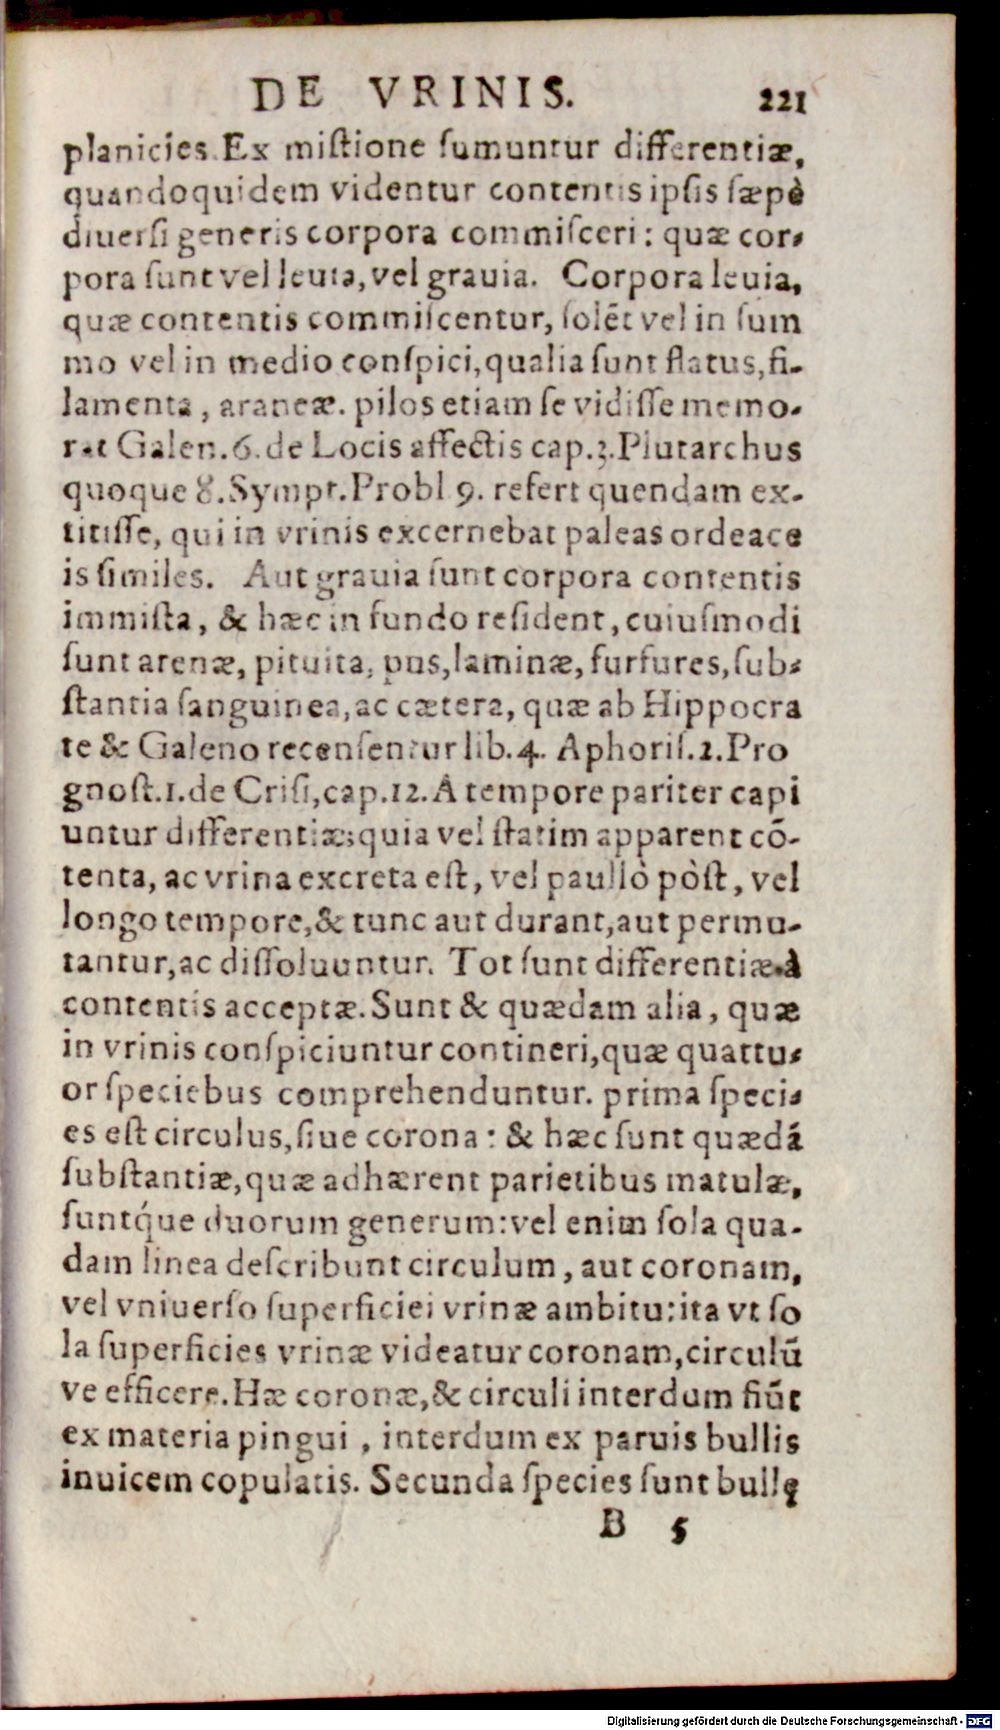 DE VRINIS. 221
planicies. Ex mistione sumuntur differentiæ,
quandoquidem videntur contentis ipsis sæpè
diuersi generis corpora commisceri: quæ cor-
pora sunt vel leuia, vel grauia. Corpora leuia,
quæ contentis commiscentur, solẽt vel in sum
mo vel in medio conspici, qualia sunt flatus, fi-
lamenta, araneæ. pilos etiam se vidisse memo-
rat Galen. 6. de Locis affectis cap. 3. Plutarchus
quoque 8. Sympt. Probl 9. refert quendam ex-
titisse, qui in vrinis excernebat paleas ordeace
is similes. Aut grauia sunt corpora contentis
immista, & hæc in fundo resident, cuiusmodi
sunt arenæ, pituita, pus, laminæ, furfures, sub-
stantia sanguinea, ac cætera, quæ ab Hippocra
te & Galeno recensentur lib. 4. Aphoris. 2. Pro
gnost. 1. de Crisi, cap. 12. A tempore pariter capi
untur differentiæ; quia vel statim apparent cõ-
tenta, ac vrina excreta est, vel paullò pòst, vel
longo tempore, & tunc aut durant, aut permu-
tantur, ac dissoluuntur. Tot sunt differentiæ à
contentis acceptæ. Sunt & quædam alia, quæ
in vrinis conspiciuntur contineri, quæ quattu-
or speciebus comprehenduntur. prima speci-
es est circulus, siue corona: & hæc sunt quædã
substantiæ, quæ adhærent parietibus matulæ,
suntq́ue duorum generum: vel enim sola qua-
dam linea describunt circulum, aut coronam,
vel vniuerso superficiei vrinæ ambitu: ita vt so
la superficies vrinæ videatur coronam, circulũ
ve efficere. Hæ coronæ, & circuli interdum fiũt
ex materia pingui, interdum ex paruis bullis
inuicem copulatis. Secunda species sunt bullę
B 5
Digitalisierung gefördert durch die Deutsche Forschungsgemeinschaft - DFG